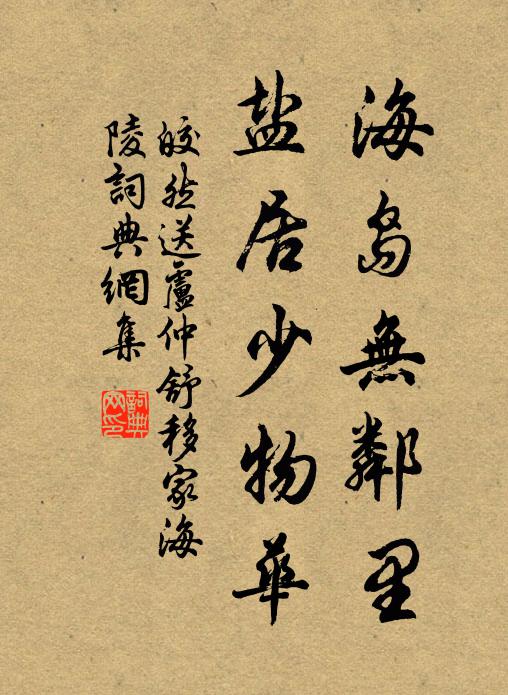 海島無鄰里
盐居少物華
皎然送盧仲舒移家海
陵詞典網集
詞典网印